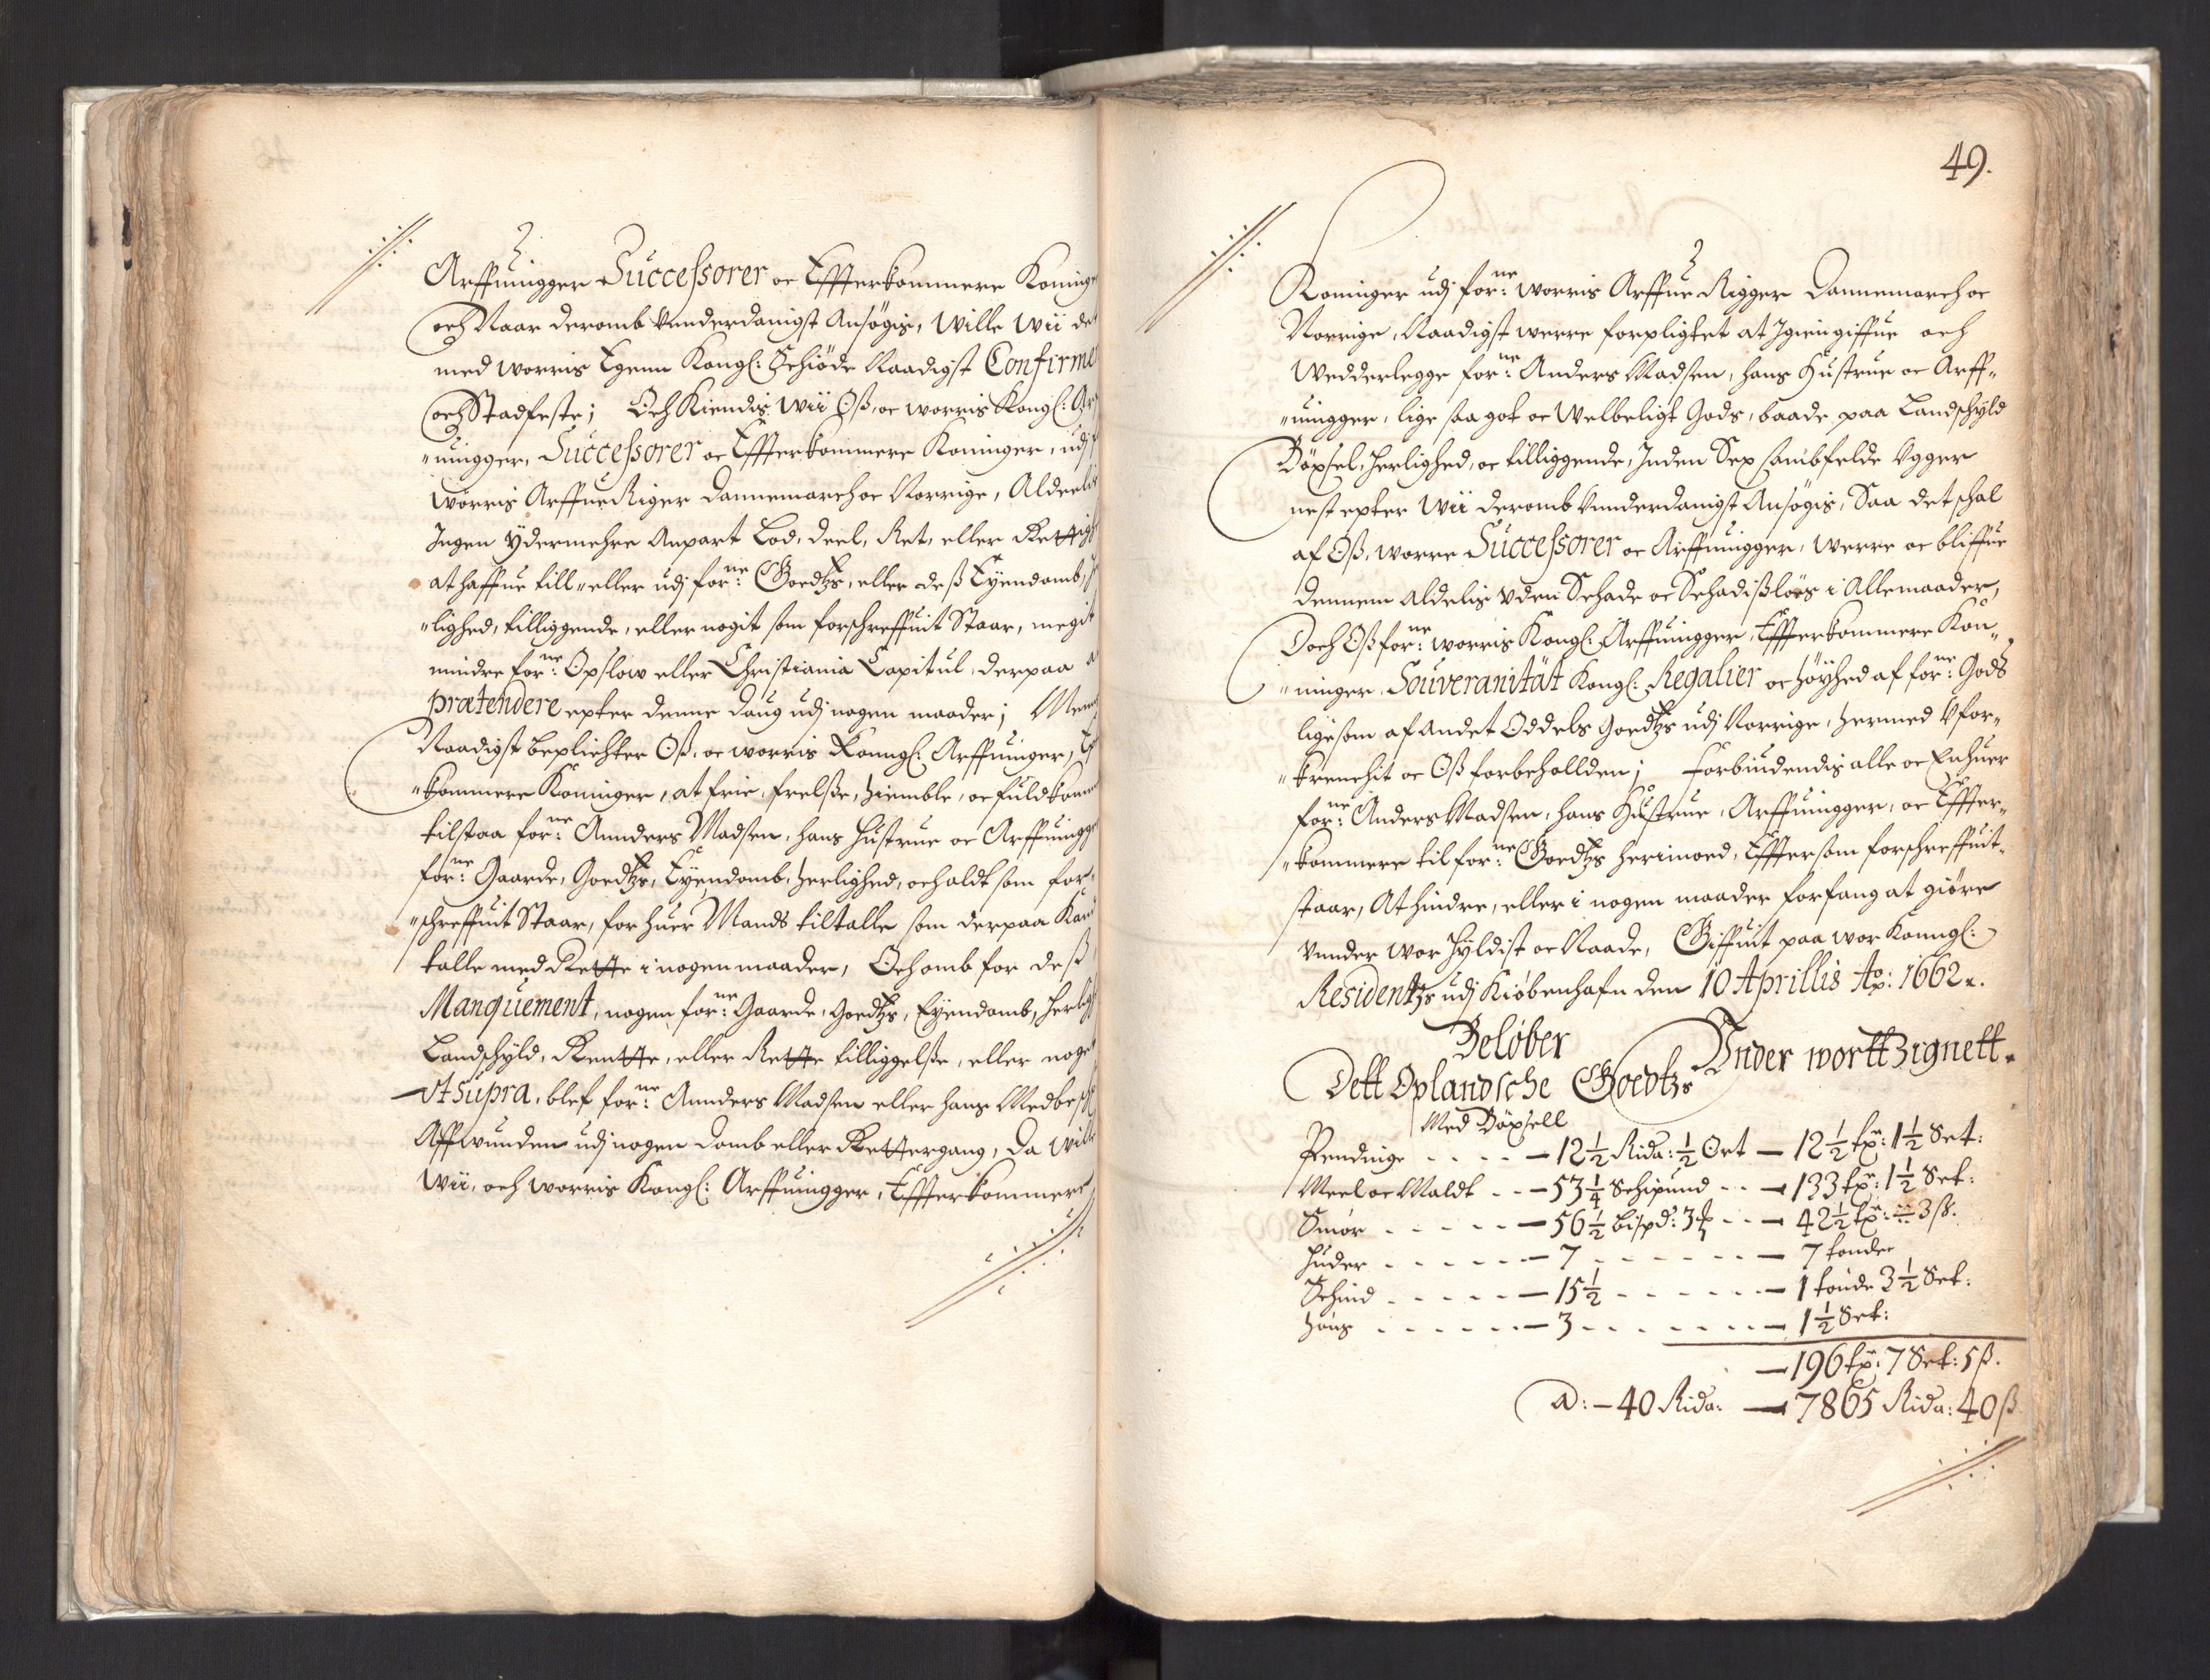 Arffuingger Successorer oc Effterkommere Koninge
och Naar deromb Vnderdanigst Ansøgis, Wille Wii det
med Worris Egenn Kongl: Schiøde Naadigst Confirme
och Stadfeste; Och Kiendis Wii Oß, oc Worris Kongl: Arf
"uingger, Successorer oc Effterkommere Koninger, udj
Worris Arffue Riger Dannemarch oc Norrige, Aldeelis
Ingen Ydermehre Anpart Lod, Deel, Ret, eller Rettigh
at haffue till "eller udj for:ne Goedtzs, eller deß Eyendomb, H
"lighed, tilliggende, eller nogit som forschreffuit Staar, megit
mindre for:ne Opslow eller Christiania Capitul, derpaa a
prætendere epter denne Daug udj nogen maader; Menn
Naadigst bepligter Oß, oc Worris Konngl: Arffuinger, Ef
"kommere Koninger, at frie, frelße, Hiemble, oc fuldkomm
tilstaa for:ne Annders Madsen, hans Hustrue oc Arffuingge
for:ne Gaarde, Goedtzs, Eyendomb, Herlighed, och aldt som for"
"schreffuit Staar, for huer Mands tiltalle som derpaa Kand
talle med Rette i nogen maader, Och omb for deß
Manquement, nogen for:ne Gaarde, Goedtzs, Eyendomb, Herligh
Landschyld, Rentte, eller Rette tilliggelße, eller noget
Vt supra, blef for:ne Annders Madsen eller hans Medbeschr
Affwunden udj nogen Domb eller Rettergang, Da Wille
Wii, och Worris Kongl: Arffuingger, Effterkommere
49.
Koninger udj for:ne Worris Arffue Rigger Dannemarch oc
Norrige, Naadigst Werre forpligtet at Igiengiffue och
Wedderlegge for:ne Anders Madsen, hans Hustrue oc Arff"
"uingger, lige saa got oc Welbeligt Gods, baade paa Landschyld
Böxsel, Herlighed, oc tilliggende, Inden Sex sambfelde Vgger
nest epter Wii deromb Vnderdanigst Ansøgis, Saa det schal
af Oß, Worre Successorer oc Arffuingger, Werre oc bliffue
dennem aldelis Vden Schade oc Schadißløes i Allemaader,
Doch Oß for:ne Worris Kongl: Arffuingger, Effterkommere Kon"
"ninger, Souveranität Kongl: Regalier oc Høyhed af for:ne Gods
ligesom af andet Oddels Goedtzs udj Norrige, Hermed Vfor"
"krenchit oc Oß forbehollden; Forbiudendis alle oc Enhuer
for:ne Anders Madsen, hans Hustrue, Arffuingger, oc Effter"
"kommere til for:ne Goedtzs herimoed, Effter som forschreffuit
staar, At hindre, eller i nogen maader forfang at giöre
Vnder Wor Hyldist oc Naade, Giffuit paa Wor Konngl:
Residentzs udj Kiøbenhafn den 10 Aprillis Ao: 1662.
Vnder Wortt Zignett.
Beløber
Dett Oplandsche Goedtzs
Med Böxsell
Pendinge - - - - 12 1/2 Rida: 1/2 Ort - 12 1/2 tr: 1 1/2 Set:
Meel oc Maldt - - 53 1/4 Schipund - - 133 tr: 1 1/2 Set:
Smør - - - - - 56 1/2 bispd: 3 ℔ - - 42 1/2 tr: ÷ 3 ß:
Huder - - - - - 7 - - - - - - 7 tønder
Schind - - - - - 15 1/2 - - - - - - 1 tønde 3 1/2 Set:
Høns - - - - - - 3 - - - - - - - 1 1/2 Set:
- 196 tr: 7 Set: 5 ß.
a: - 40 Rida: - 7865 Rida: 40 ß